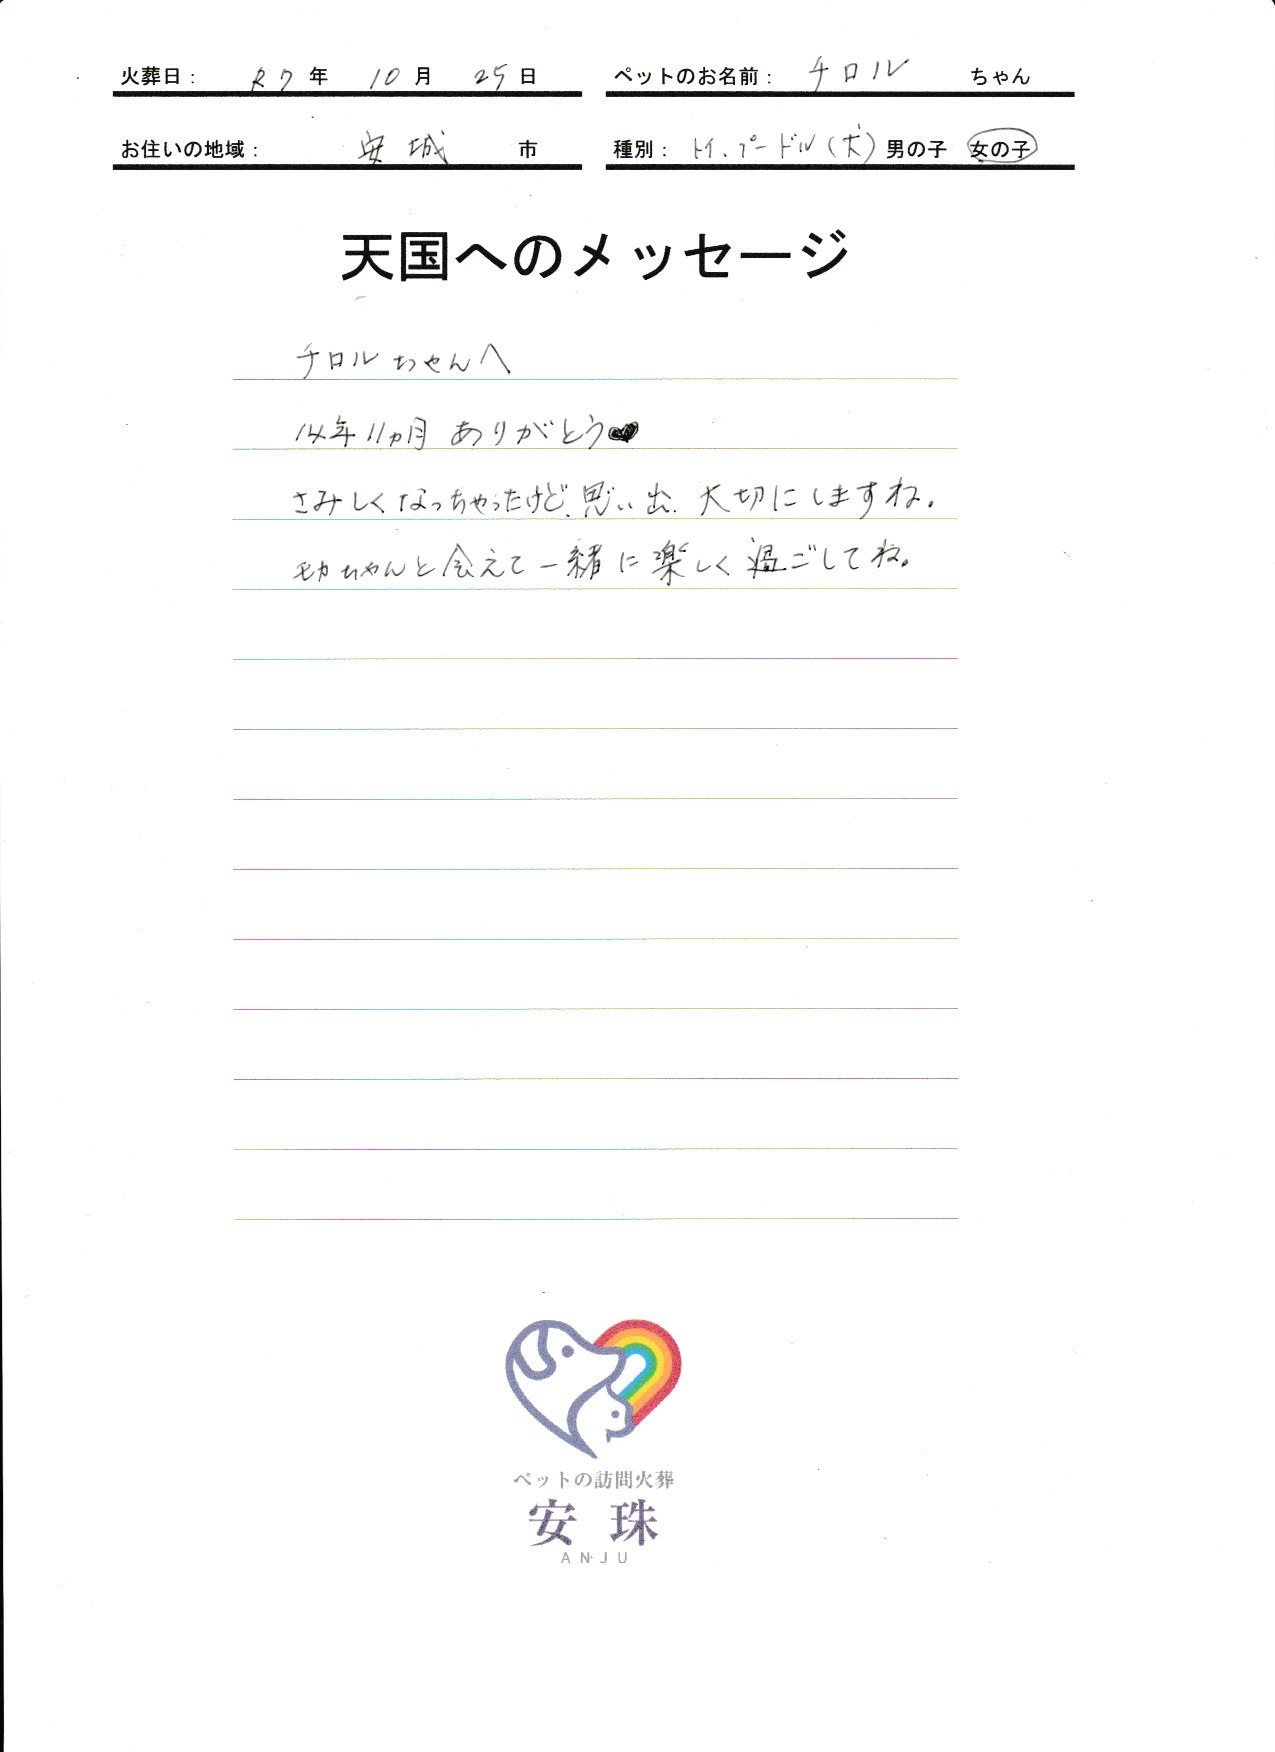 火葬日： R7 年 10 月 25 日 ペットのお名前： チロル ちゃん
お住いの地域： 安城 市 種別： トイ、プードル（犬） 男の子 女の子
天国へのメッセージ
チロルちゃんへ
14年11ヵ月 ありがとう♥
さみしくなっちゃったけど、思い出、大切にしますね。
モカちゃんと会えて一緒に楽しく過ごしてね。
ペットの訪問火葬
安珠
ANJU